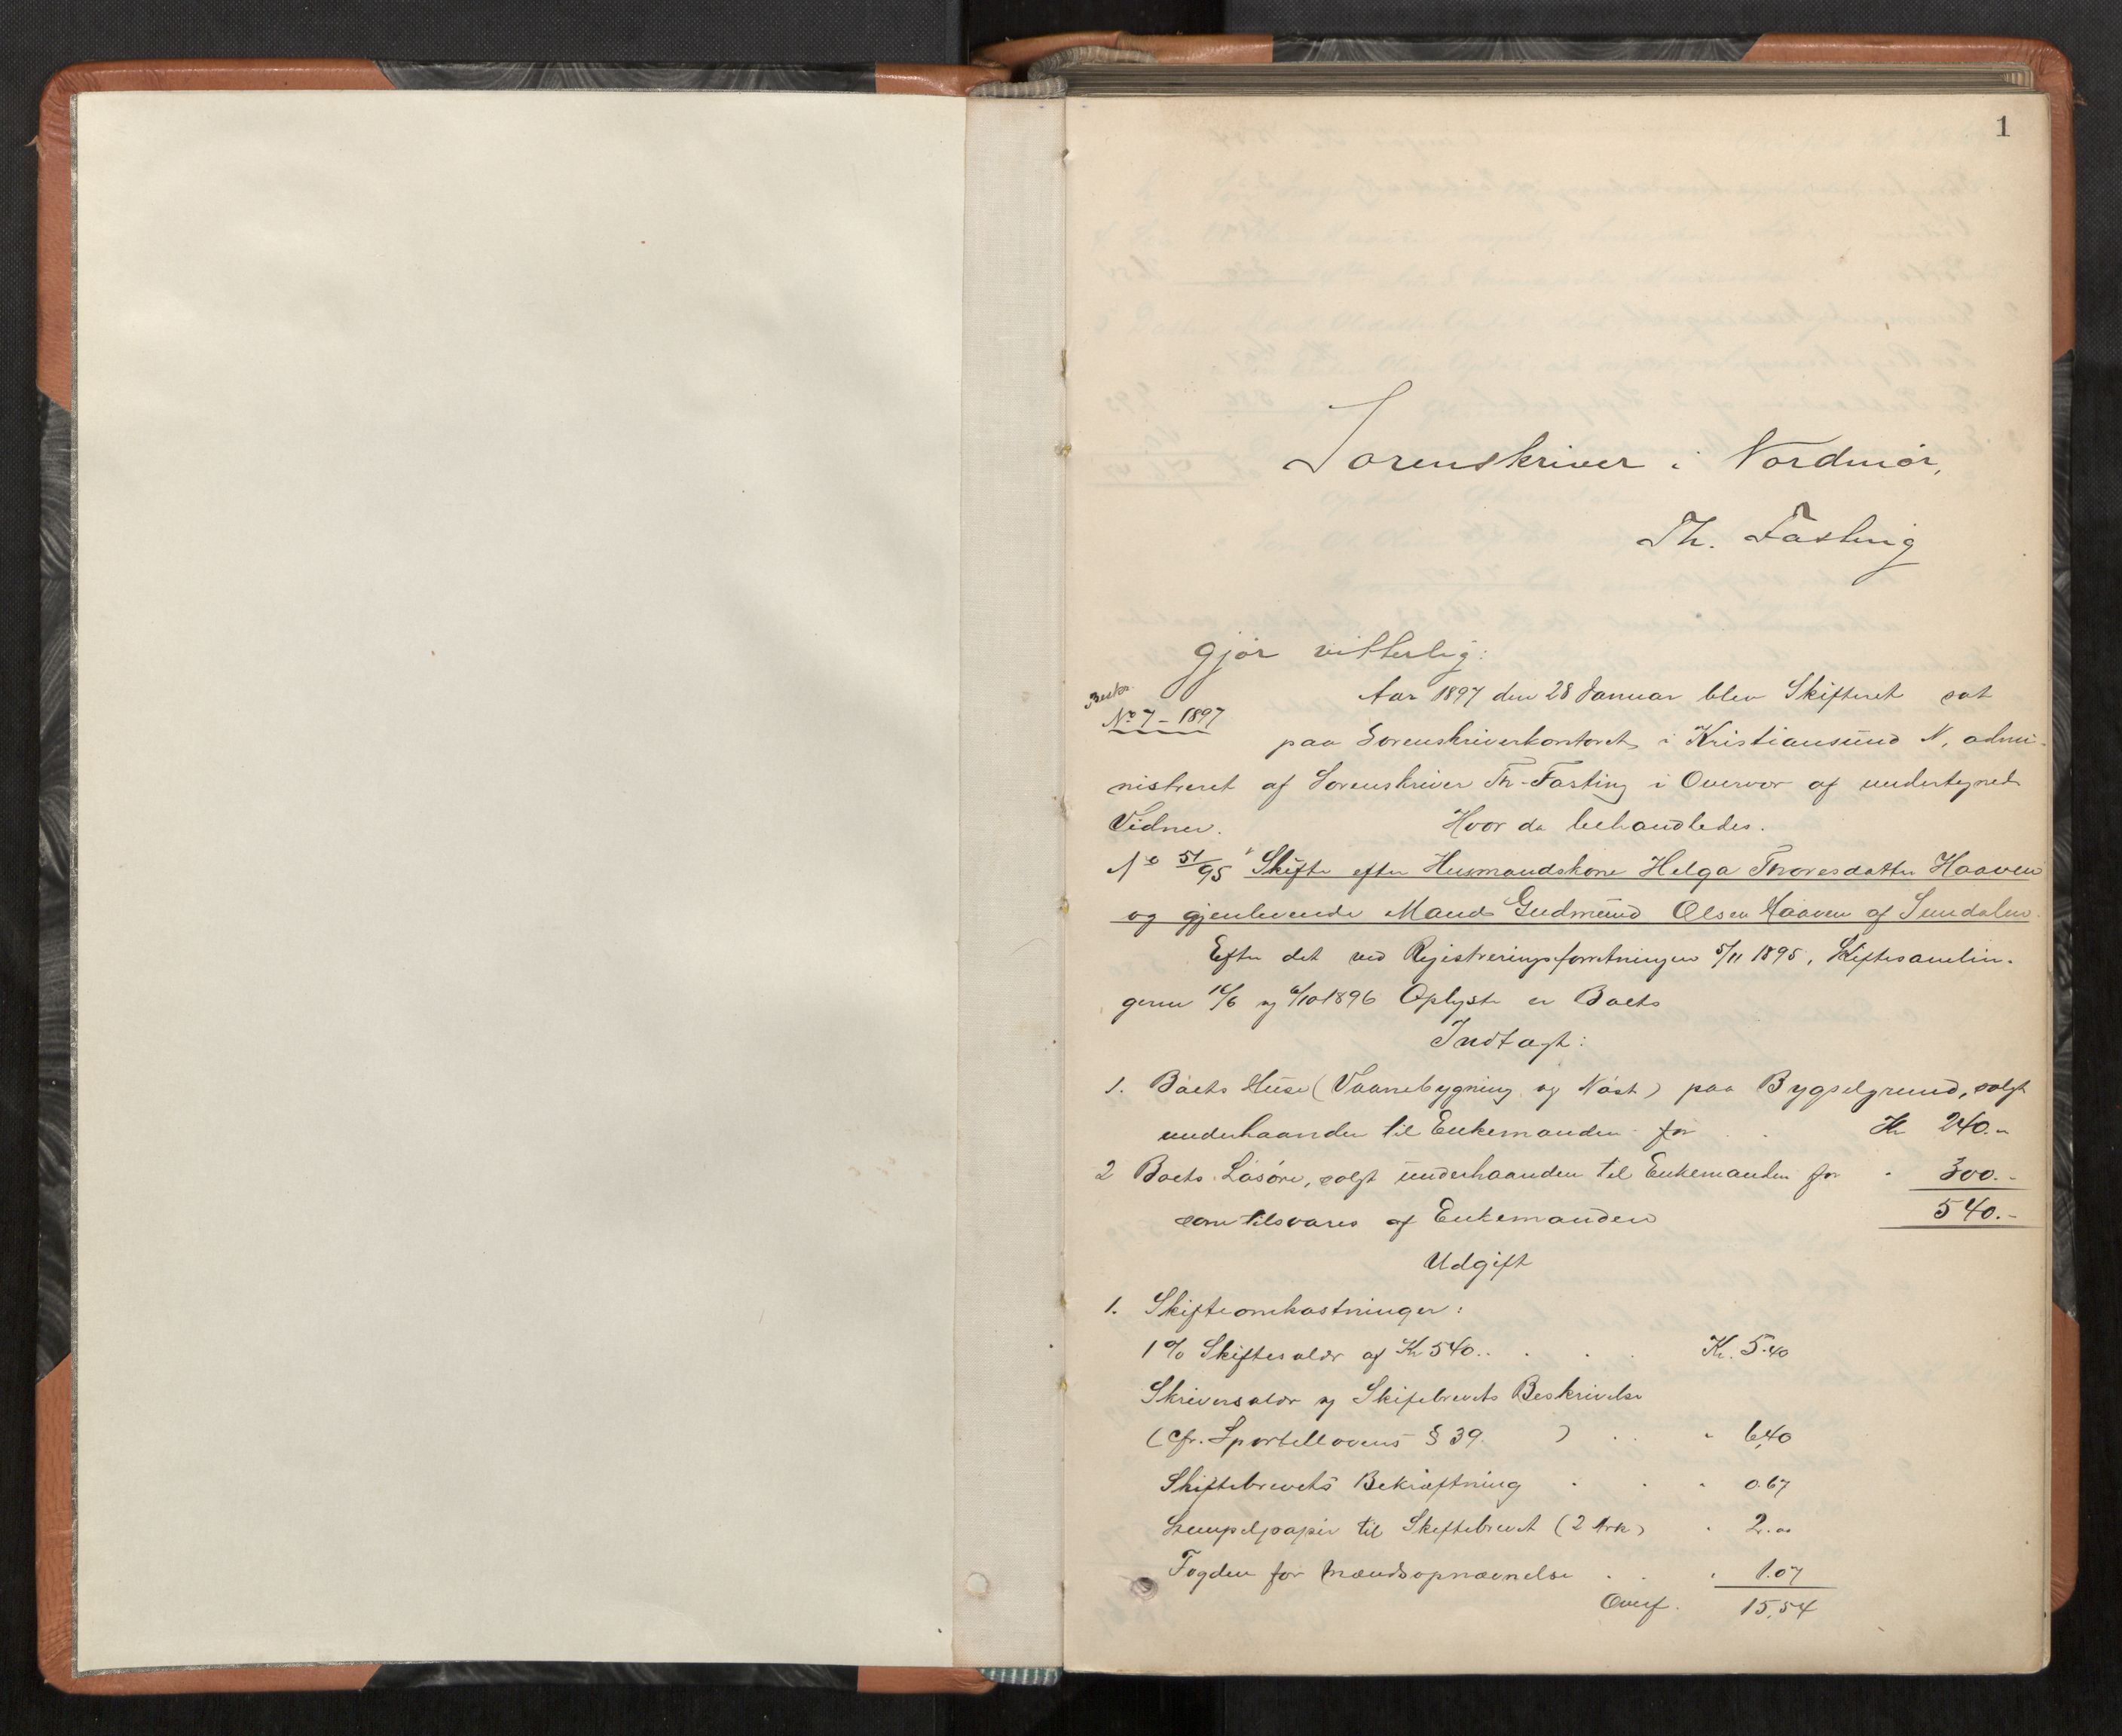 1
Sorenskriver i Nordmør,
Th. Fasting
gjør vitterlig:
No 7 - 1897
Aar 1897 den 28 Januar blev Skifteret sat
paa Sorenskriverkontoret i Kristiansund N, admi-
nistreret af Sorenskriver Th. Fasting i Overvær af undertegned
Vidner. Hvor da behandledes.
No 51/95 Skifte efter Husmandskone Helga Thoresdatter Haaven
og gjenlevende Mand Gudmund Olsen Haaven af Sundalen.
Efter det ved Registreringsforretningen 5/11 1895, Skiftesamlin-
gerne 16/6 og 6/10 1896 Oplyste er Boets
Indtægt:
1. Boets Huse (Vaanebygning og Nøst) paa Bygselgrund, solgt
underhaanden til Enkemanden for . . Kr 240.-
2 Boets Løsøre, solgt underhaanden til Enkemanden for " 300.-
som tilsvares af Enkemanden 540.-
Udgift
1. Skifteomkostninger:
1% Skiftesalær af Kr 540.. . . . Kr. 5.40
Skriversalær og Skiftebrevets Beskrivelse
(Cfr. Sportellovens § 39. ) . . " 6,40
Skiftebrevets Bekræftning . . " 0.67
Stempelpapir til Skiftebrevet (2 Ark) " 2.00
Fogden for Mændsopnævnelse . . " 1.07
Overf. 15,54